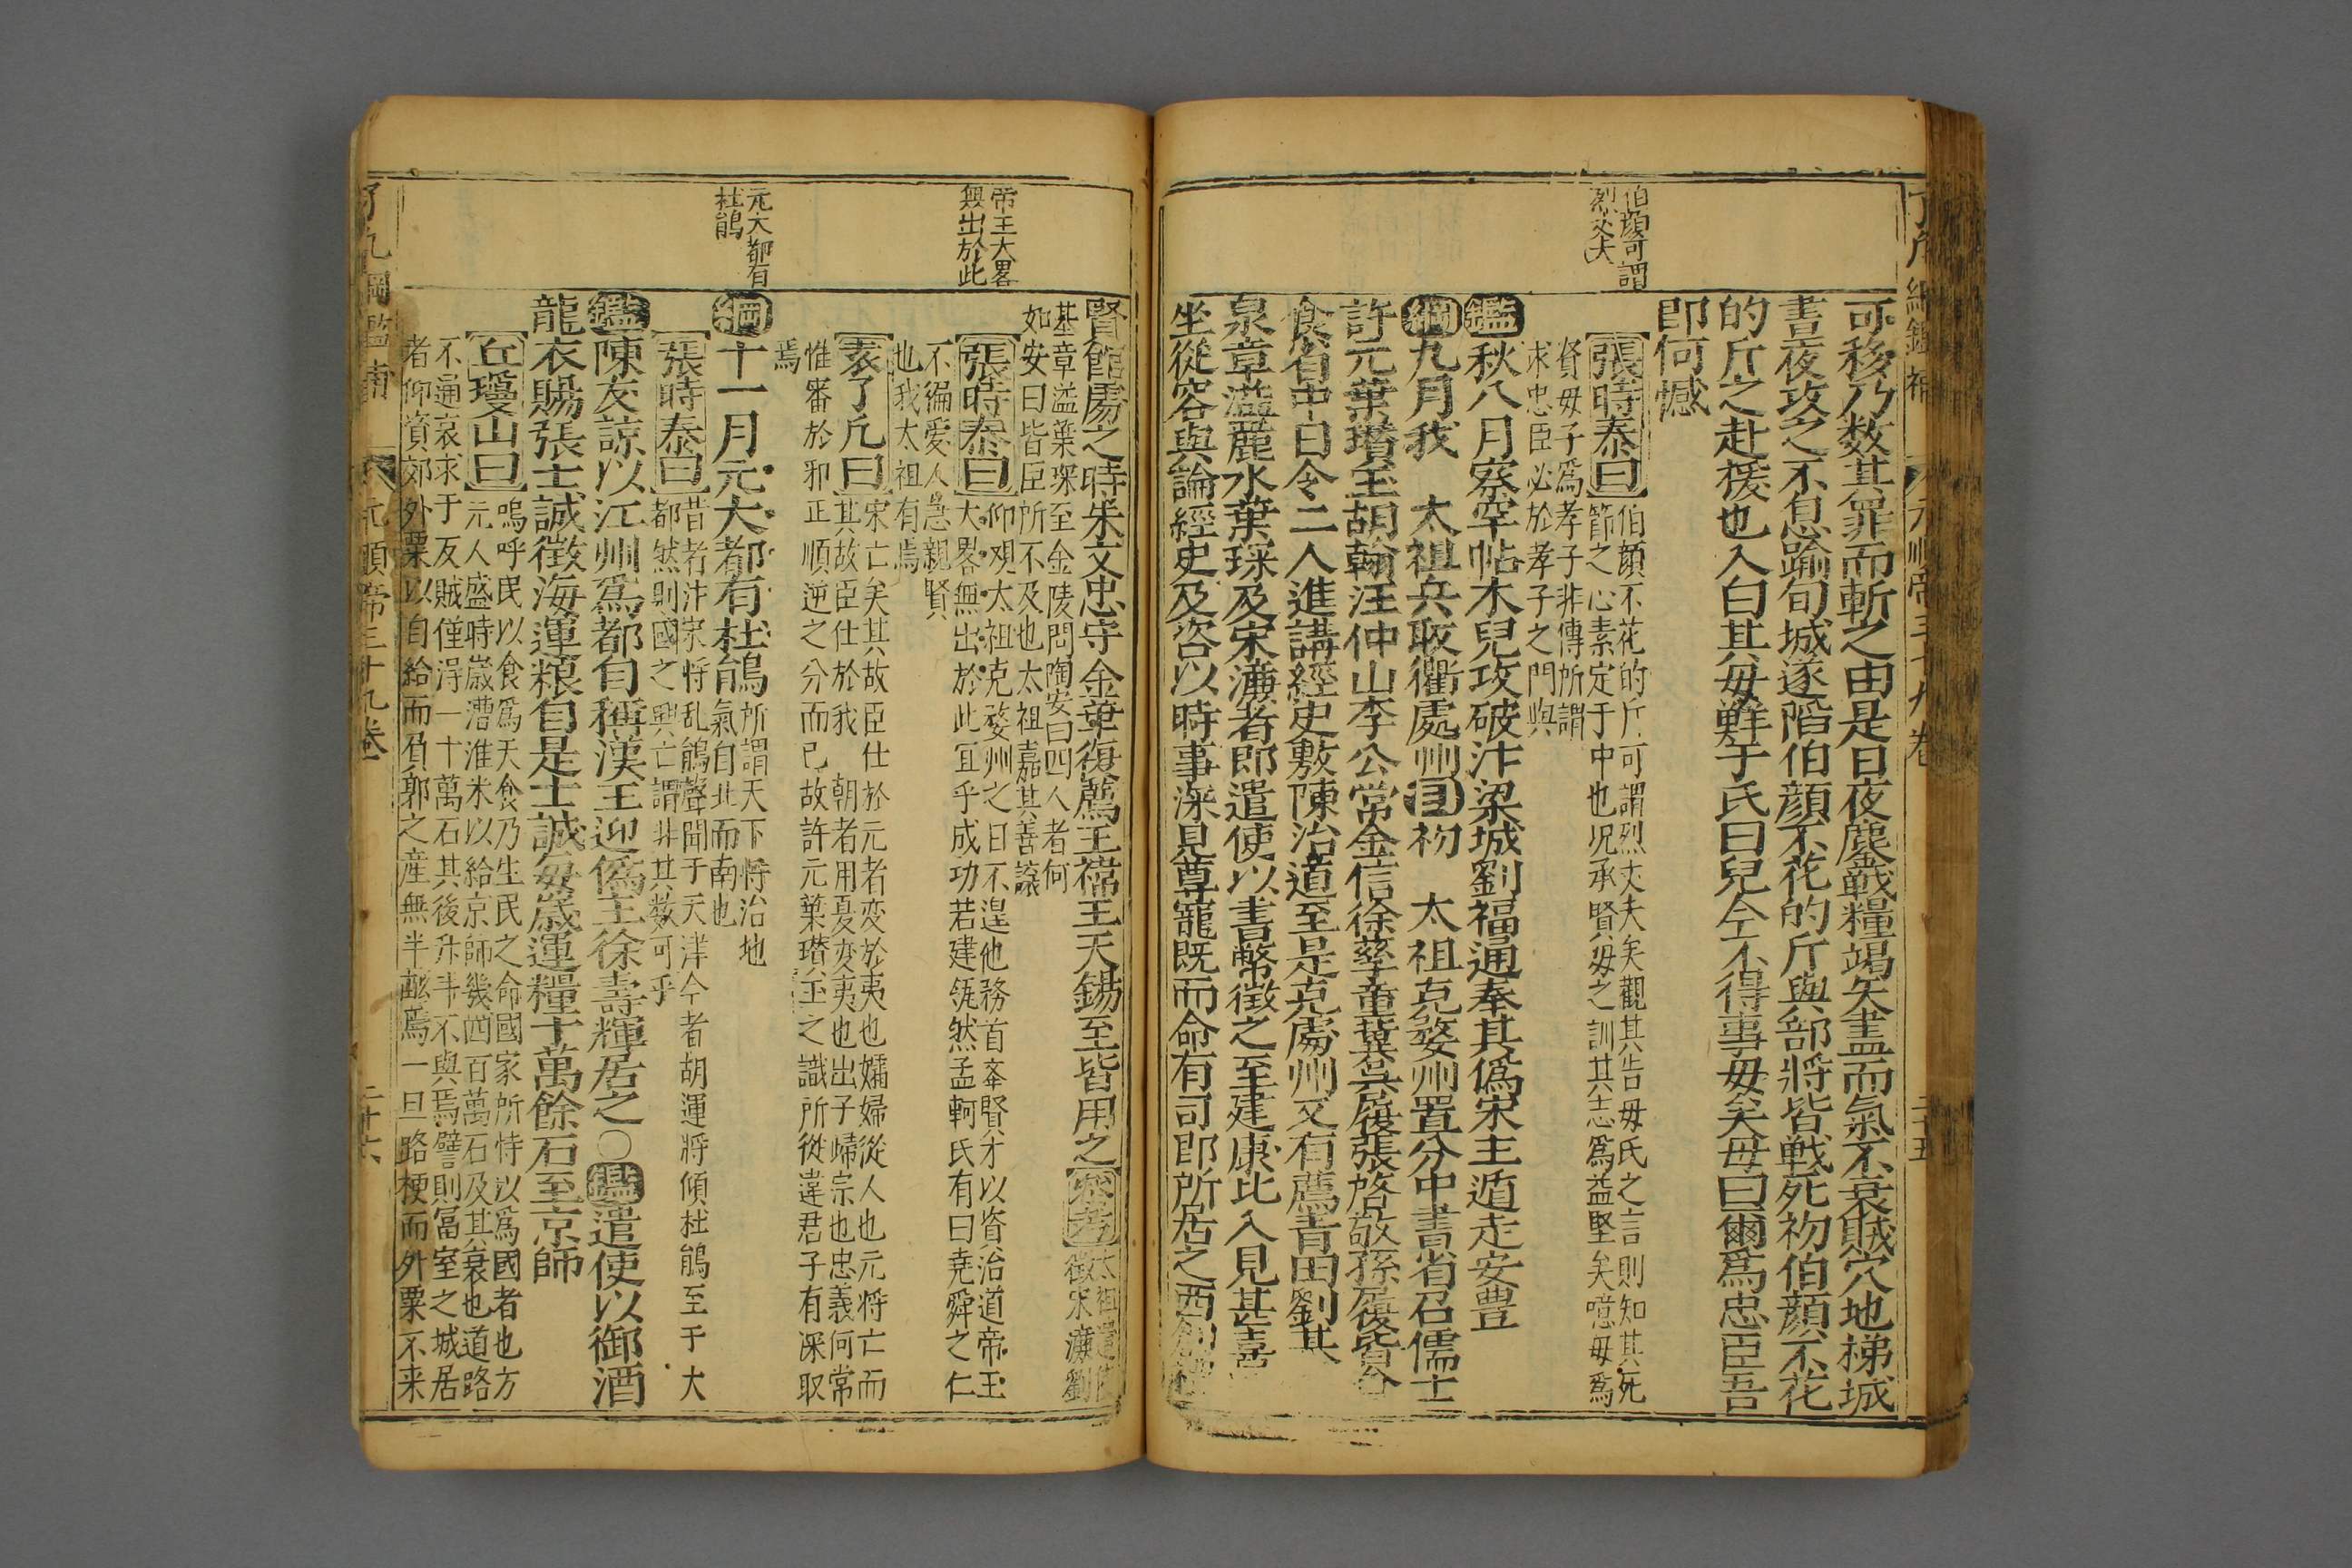 伯顔可謂
烈丈夫
可移乃数其罪而斬之由是日夜鏖戰糧竭矢盡而氣不衰賊穴地梯城
晝夜攻之不息踰旬城遂陷伯顔不花的斤與部將皆戦死初伯顔不花
的斤之赴援也入白其毋鮮于氏曰兒今不得事毋矣毋曰爾爲忠臣吾
即何憾
張時泰曰
伯顔不花的斤可謂烈丈夫矣觀其告毋氏之言則知其死
節之心素定于中也况承賢毋之訓其志爲益堅矣噫毋爲
賢毋子爲孝子非傳所謂
求忠臣必於孝子之門與
鑑秋八月察罕帖木兒攻破汴梁城劉福通奉其僞宋主遁走安豊
綱九月我 太祖兵取衢處州目初 太祖克婺州置分中書省召儒士
許元葉瓚玉胡翰汪仲山李公常金信徐孳童冀吳履張啓敬孫履皆會
食省中日令二人進講經史敷陳治道至是克處州又有薦青田劉基
泉章溢麗水葉琛及宋濂者即遣使以書幣徵之至建康比入見甚喜
坐從容與論經史及咨以時事深見尊寵既而命有司即所居之西創禮
帝王大畧
無出於此
元大都有
杜鵑
賢館處之時朱文忠守金華復薦王禕王天錫至皆用之
太祖遣使
徵宋濂劉
基章溢葉琛至金陵問陶安曰四人者何
如安曰皆臣所不及也太祖嘉其善譲
張時泰曰
仰观太祖克婺州之日不遑他務首奉賢才以資治道帝王
大畧無出於此宜乎成功若建瓴然孟軻氏有曰尭舜之仁
不徧愛人急親賢
也我太祖有焉
袁了凡曰
宋亡矣其故臣仕於元者变於夷也孀婦從人也元将亡而
其故臣仕於我 朝者用夏变夷也出子歸宗也忠義何常
惟審於邪正順逆之分而已故許元葉瓚玉之識所從違君子有深取
焉
綱十一月元大都有杜鵑
所謂天下将治地
氣自北而南也
張時泰曰
昔者汴宋将乱鵑聲聞于天津今者胡運将傾杜鵑至于大
都然則國之興亡謂非其数可乎
鑑陳友諒以江州爲都自稱漢王迎僞主徐壽輝居之○鑑遣使以御酒
龍衣賜張士誠徵海運粮自是士誠毎歳運糧十萬餘石至京師
丘瓊山曰
嗚呼民以食爲天食乃生民之命國家所恃以爲國者也方
元人盛時歳漕淮米以給京師幾四百萬石及其衰也道路
不通哀求于反賊僅得一十萬石其後升斗不與焉譬則冨室之城居
者仰資郊外粟以自給而負郭之産無半畝焉一旦路梗而外粟不来
了凡綱鑑補 元順帝三十九卷 二十六